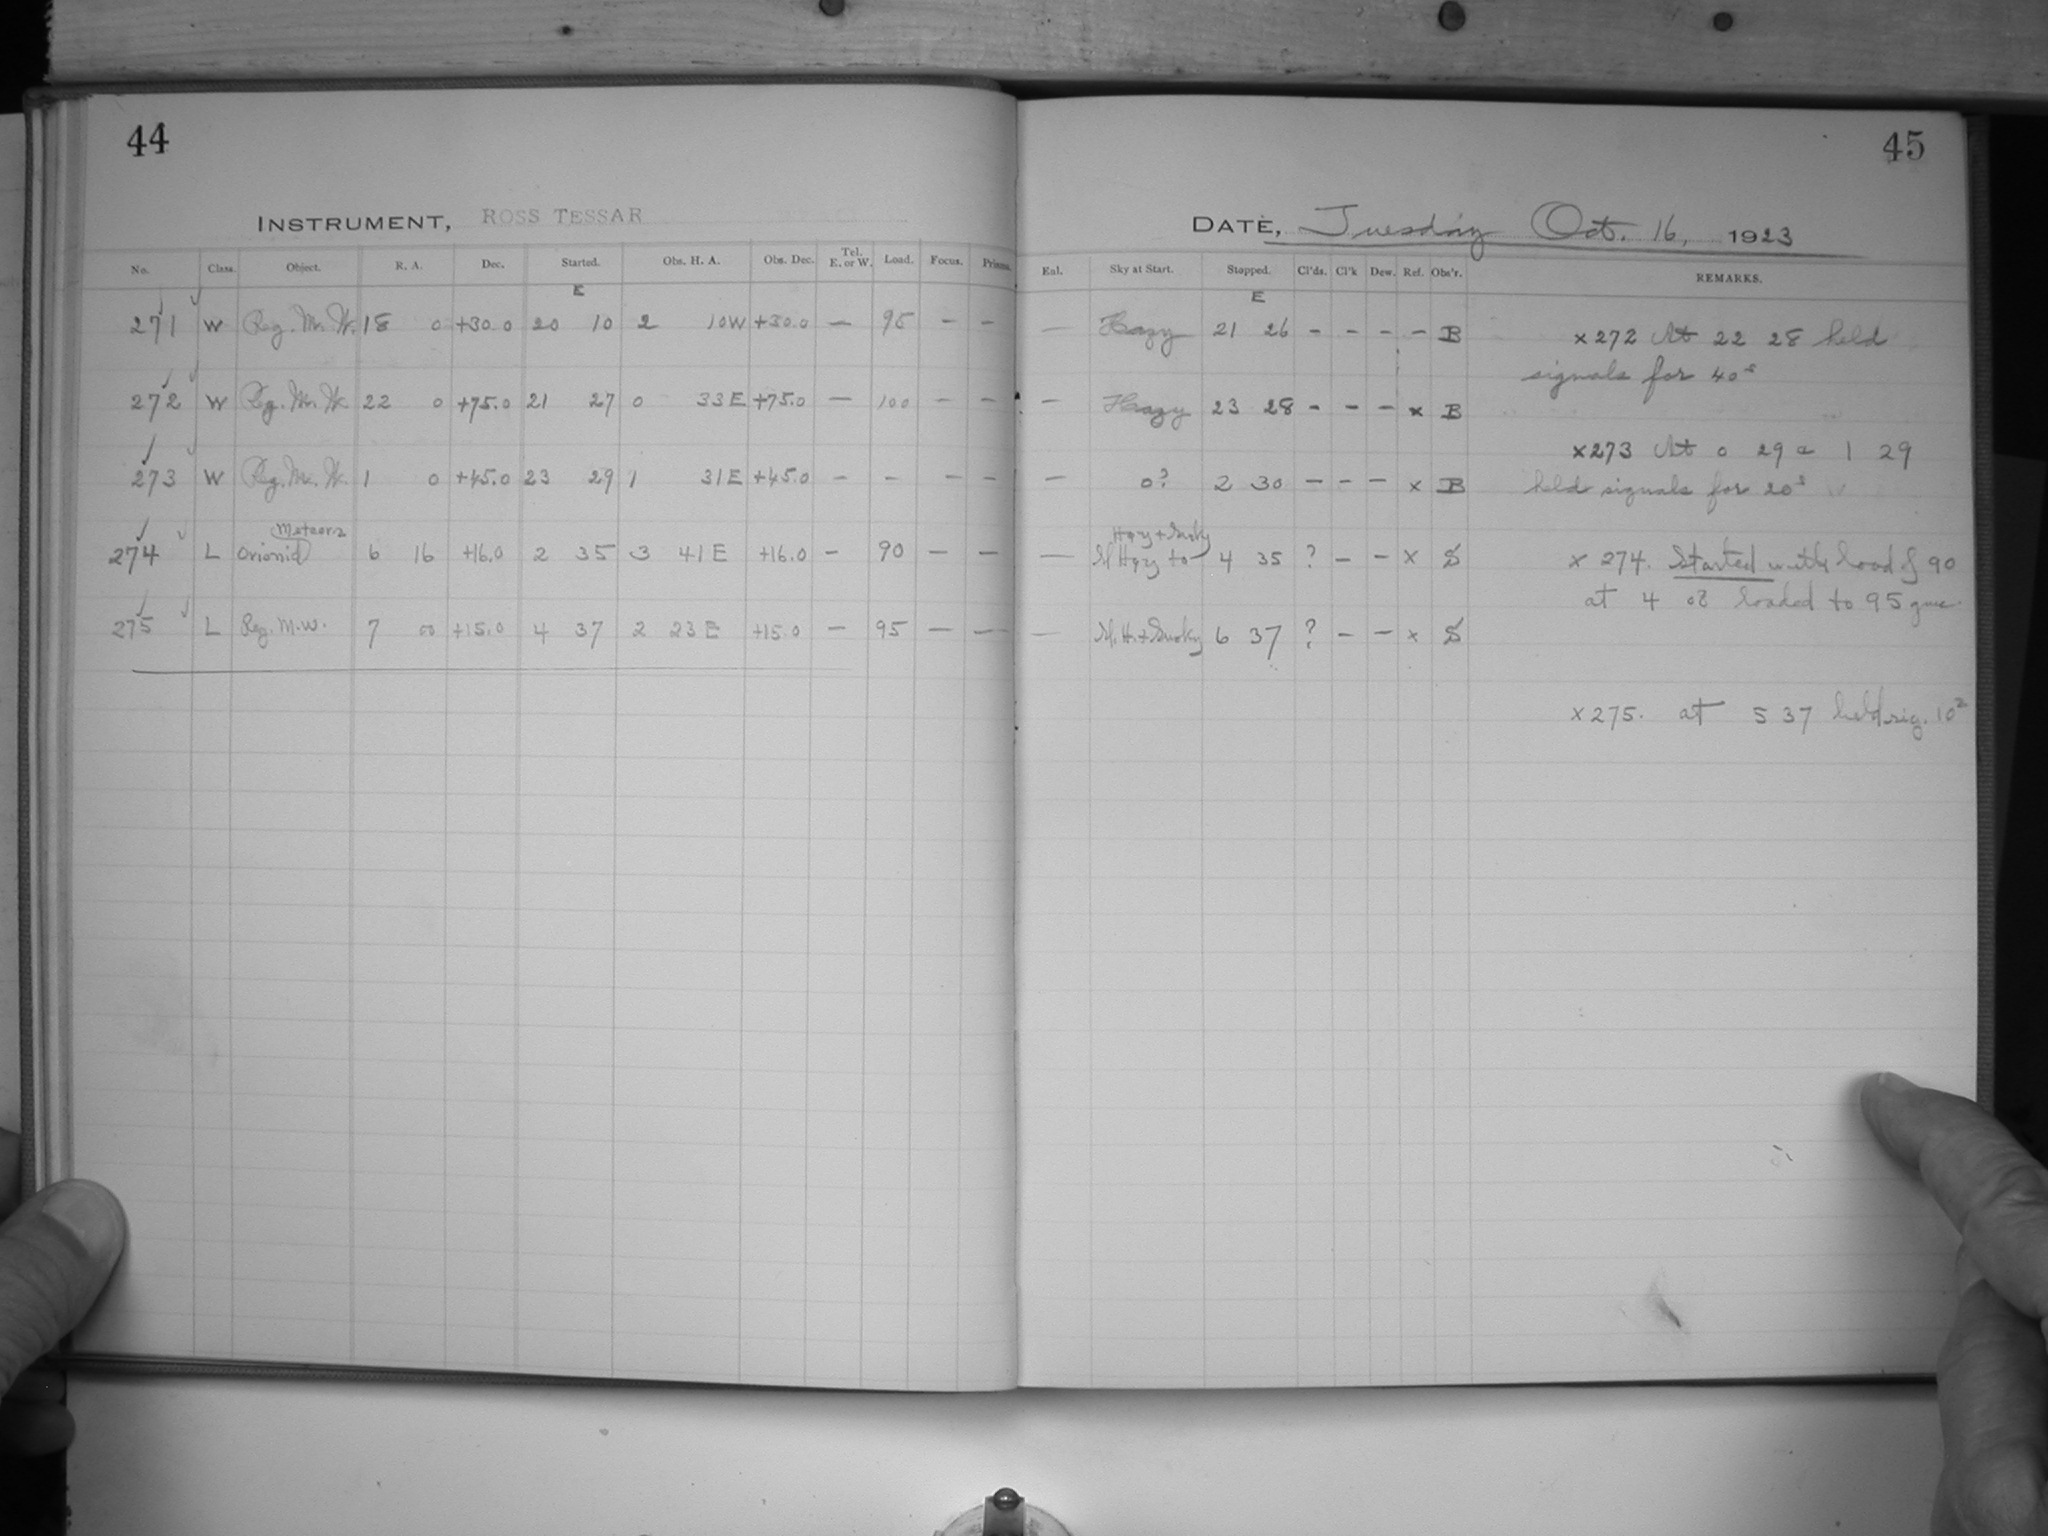 44
INSTRUMENT, ROSS TESSAR
No. Class. Object. R. A. Dec. Started. Obs. H. A. Obs. Dec. Tel. E. or W. Load. Focus. Prisms.
E
271 W Reg. M. W. 18 0 +30.0 20 10 2 10W +30.0 — 95 — —
272 W Reg. M. W. 22 0 +75.0 21 27 0 33E +75.0 — 100 — —
273 W Reg. M. W. 1 0 +45.0 23 29 1 31E +45.0 — — — —
Meteors
274 L Orionid 6 16 +16.0 2 35 3 41E +16.0 — 90 — —
275 L Reg. M.W. 7 00 +15.0 4 37 2 23E +15.0 — 95 — —
45
DATE, Tuesday Oct. 16, 1923
Enl. Sky at Start. Stopped. Cl'ds. Cl'k Dew. Ref. Obs'r. REMARKS.
E
— Hazy 21 26 – – – – B
— Hazy 23 28 – – – x B
— 0? 2 30 – – – x B
Hazy + Smoky
— Hazy to 4 35 ? – – x S
— M. H. + Smoky 6 37 ? – – x S
x272 At 22 28 held
signals for 40s
x273 At 0 29 1 29
held signals for 20s
x 274. Started with load of 90
at 4 08 loaded to 95
x275. at 5 37 held sig. 10s